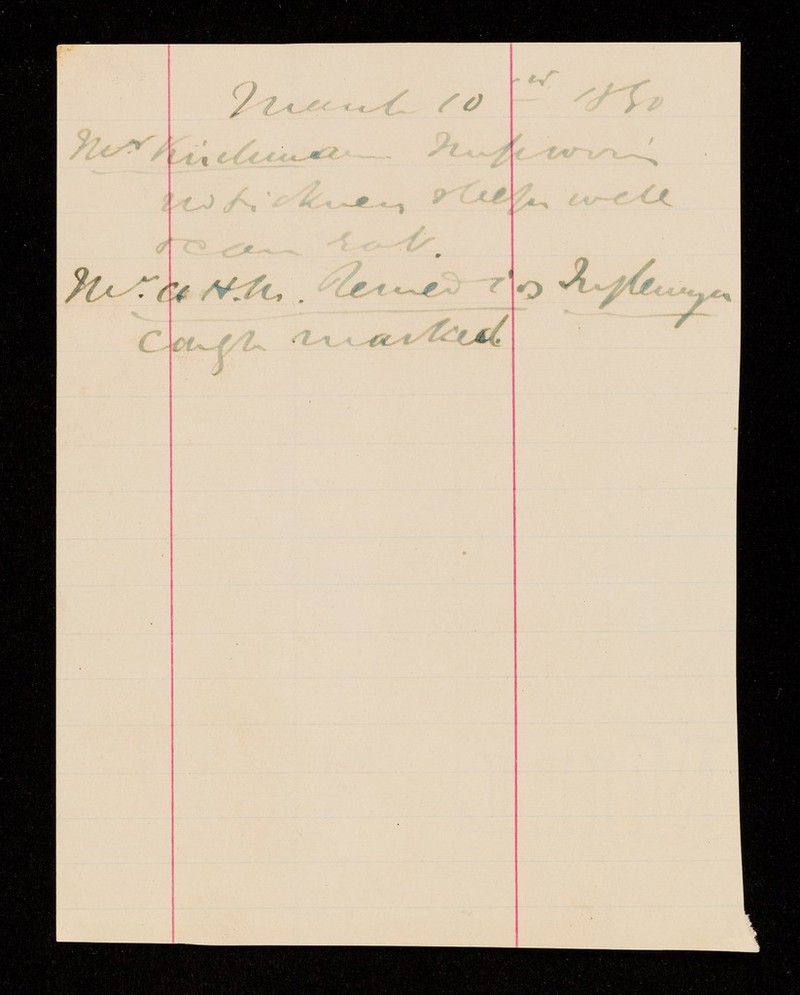 March 10 1890
Mr Kirchmann Improving
no sickness sleeps well
& can eat.
Mr. a H. M. Remedios
cough marked.